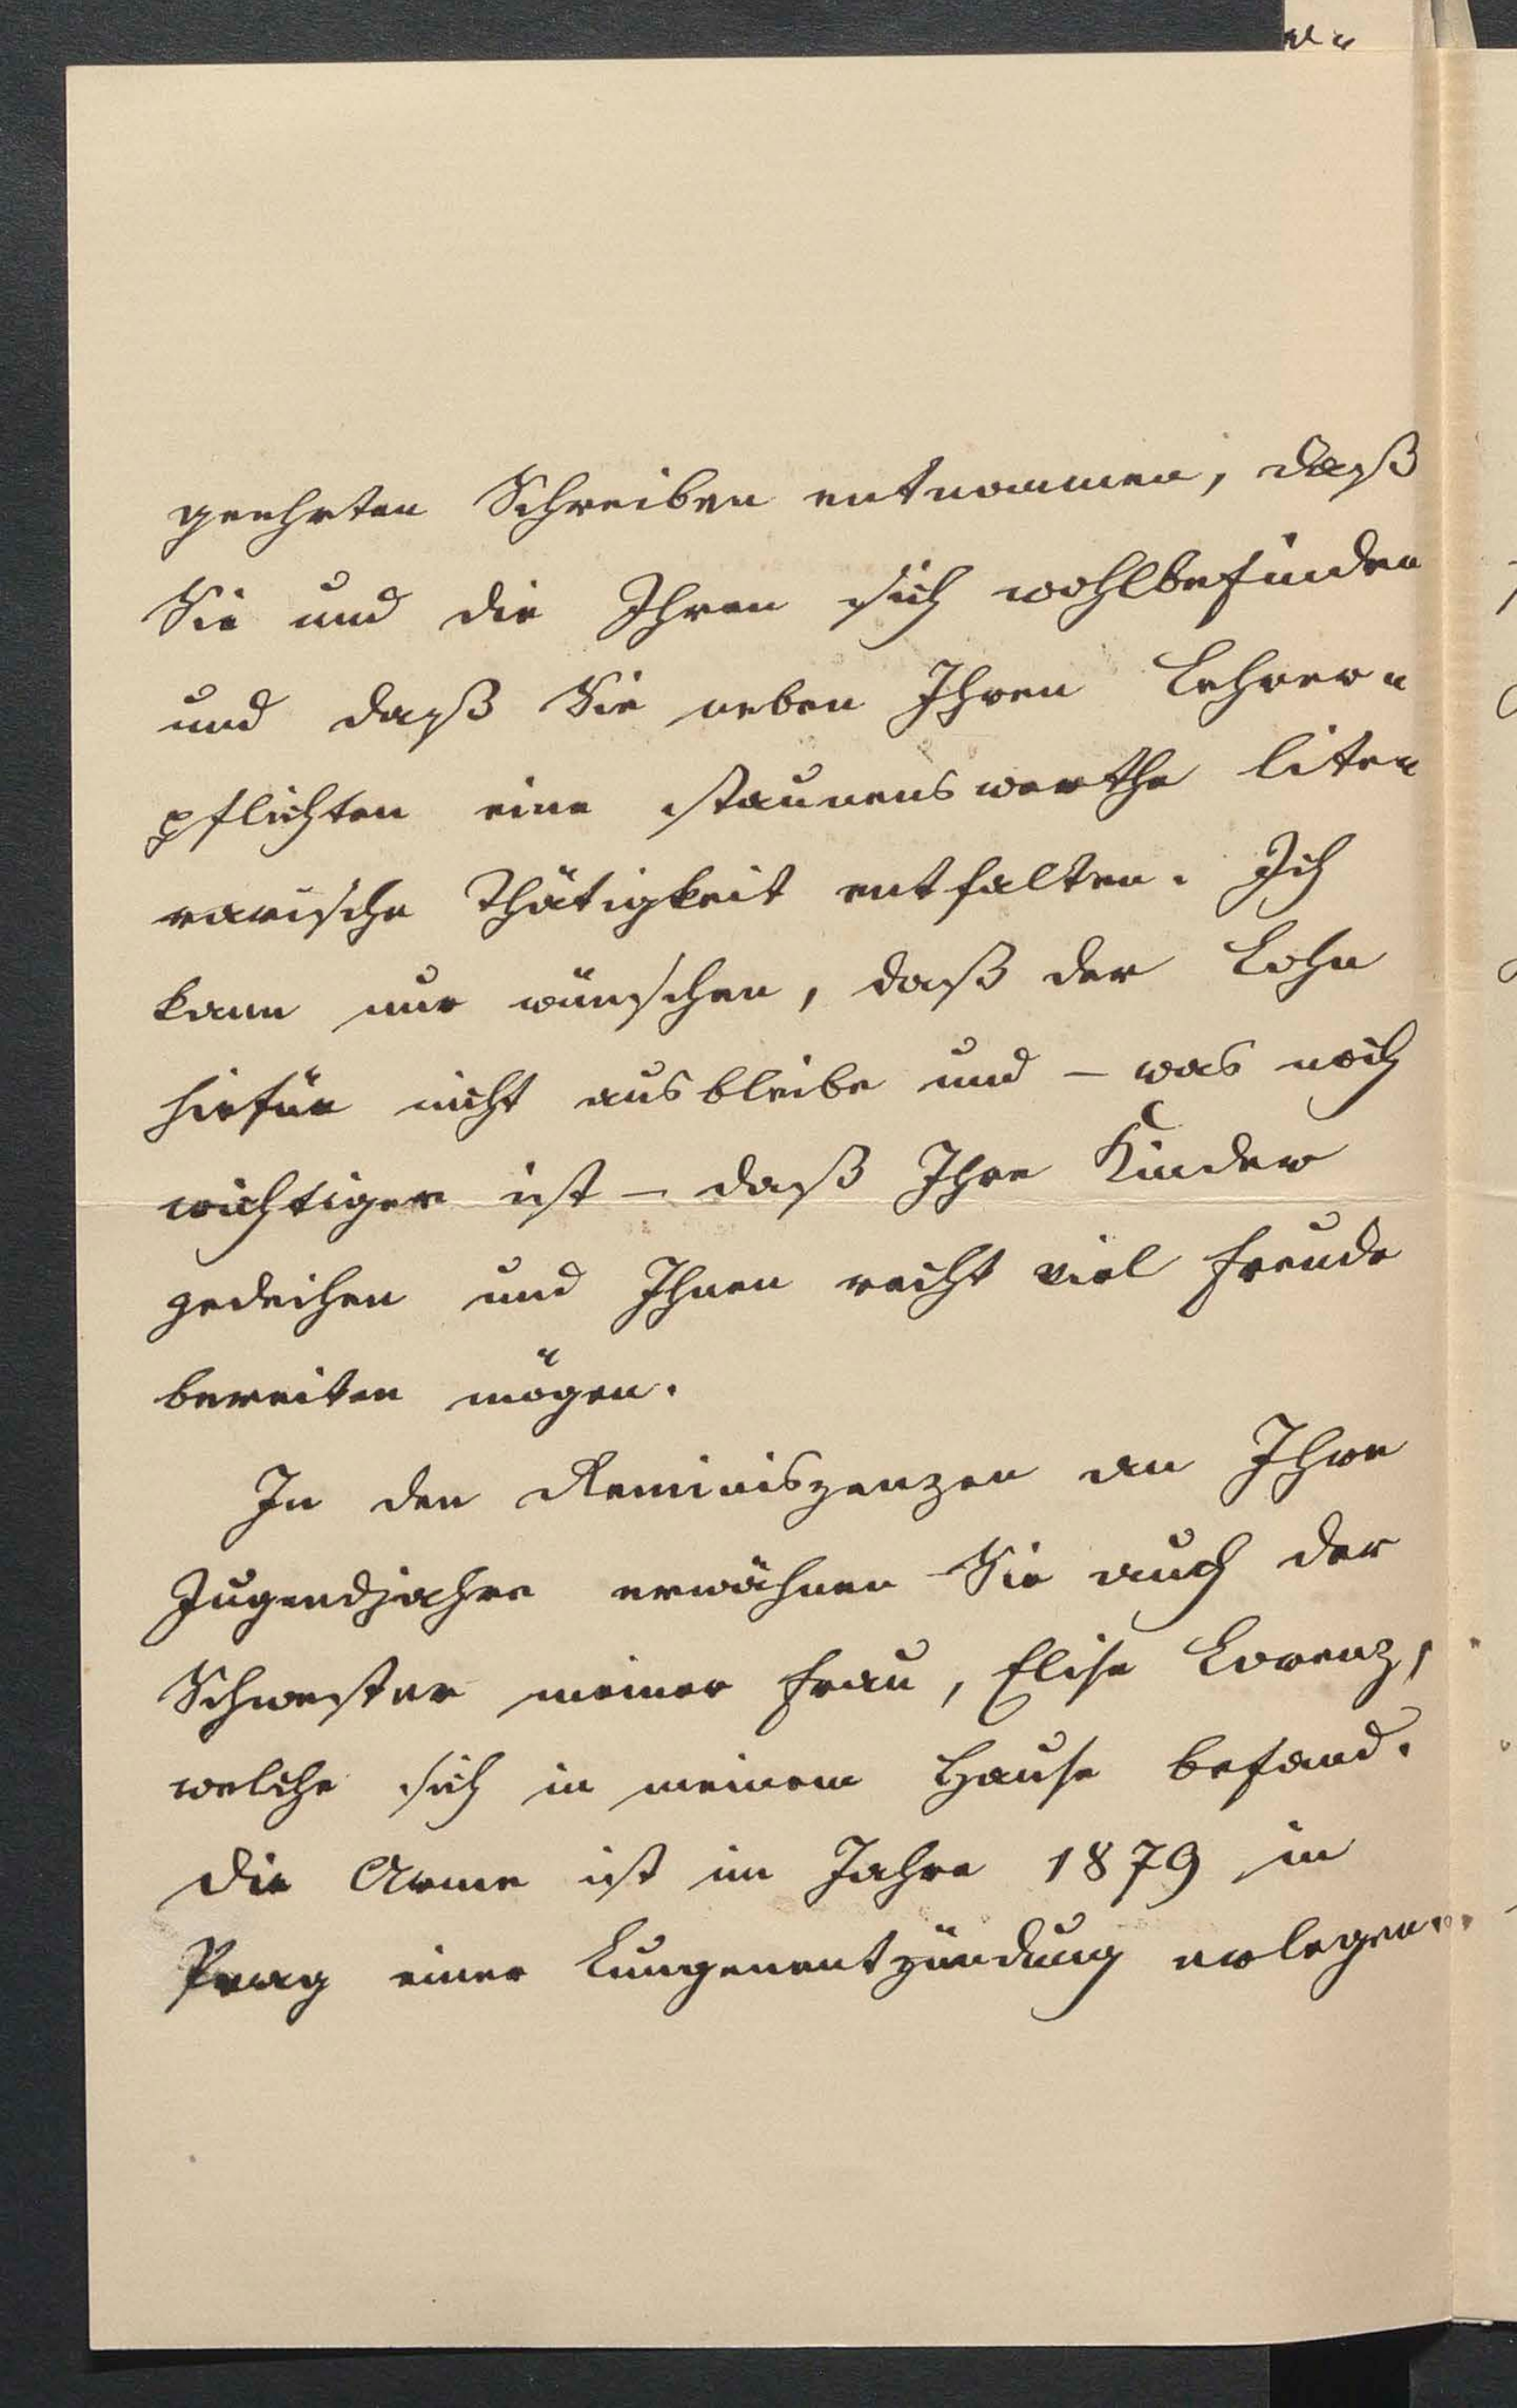 geehrten Schreiben entnommen, daß
Sie und die Ihren sich wohlbefinden
und daß Sie neben Ihren Lehrer=
pflichten eine staunenswerthe lite=
rarische Thätigkeit entfalten. Ich
kann nur wünschen, daß der Lohn
hiefür nicht ausbleibe und – was noch
wichtiger ist – daß Ihre Kinder
gedeihen und Ihnen recht viel Freude
bereiten mögen.
In den Reminiszenzen an Ihre
Jugendjahre erwähnen Sie auch der
Schwester meiner Frau, Elise Lorenz,
welche sich in meinem Hause befand.
Die Arme ist im Jahre 1879 in
Prag einer Lungenentzündung erlegen.